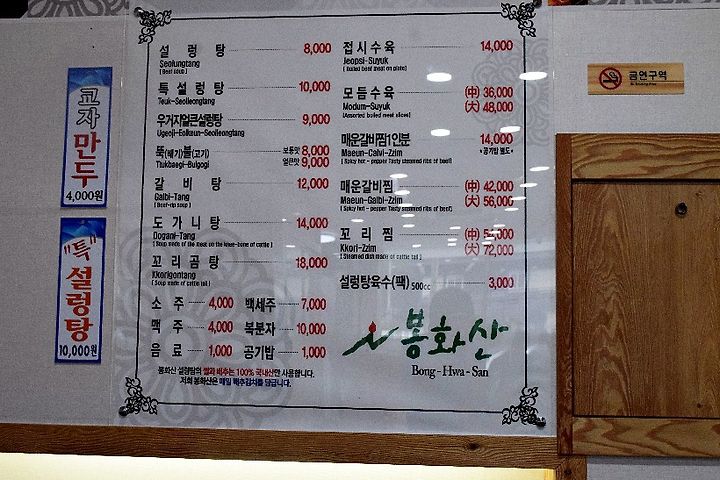 설 렁 탕 8,000
Seolungtang
( Beef soup )
특설렁탕 10,000
Teuk-Seolleongtang
우거지얼큰설렁탕 9,000
Ugeoji-Eolkeun-Seolleongtang
뚝(배기)불(고기) 보통맛 8,000
얼큰맛 9,000
Ttukbaegi-Bulgogi
갈 비 탕 12,000
Galbi-Tang
( Beef-rip soup )
도 가 니 탕 14,000
Dogani-Tang
( Soup made of the meat on the knee-bone of cattle )
꼬 리 곰 탕 18,000
Kkorigomtang
( Soup made of cattle tail )
소 주 4,000 백세주 7,000
맥 주 4,000 복분자 10,000
음 료 1,000 공기밥 1,000
봉화산 설렁탕의 쌀과 배추는 100% 국내산만 사용합니다.
저희 봉화산은 매일 배추김치를 담급니다.
접 시 수 육 14,000
Jeopsi-Suyuk
( boiled beef meat on plate )
모 듬 수 육 (中) 36,000
(大) 48,000
Modum-Suyuk
(Assorted boiled meat slices)
매운갈비찜1인분 14,000
Maeun-Calvi-Zzim *공기밥 별도*
( Spicy hot - pepper Tasty steamed ribs of beef)
매운갈비찜 (中) 42,000
(大) 56,000
Maeun-Galbi-Zzim
( Spicy hot - pepper Tasty steamed ribs of beef)
꼬 리 찜 (中)
(大) 72,000
Kkori-Zzim
( Steamed dish made of cattle tail )
설렁탕육수(팩) 500cc 3,000
봉화산
Bong-Hwa-San
교자만두
4,000원
"특"설렁탕
10,000원
금연구역